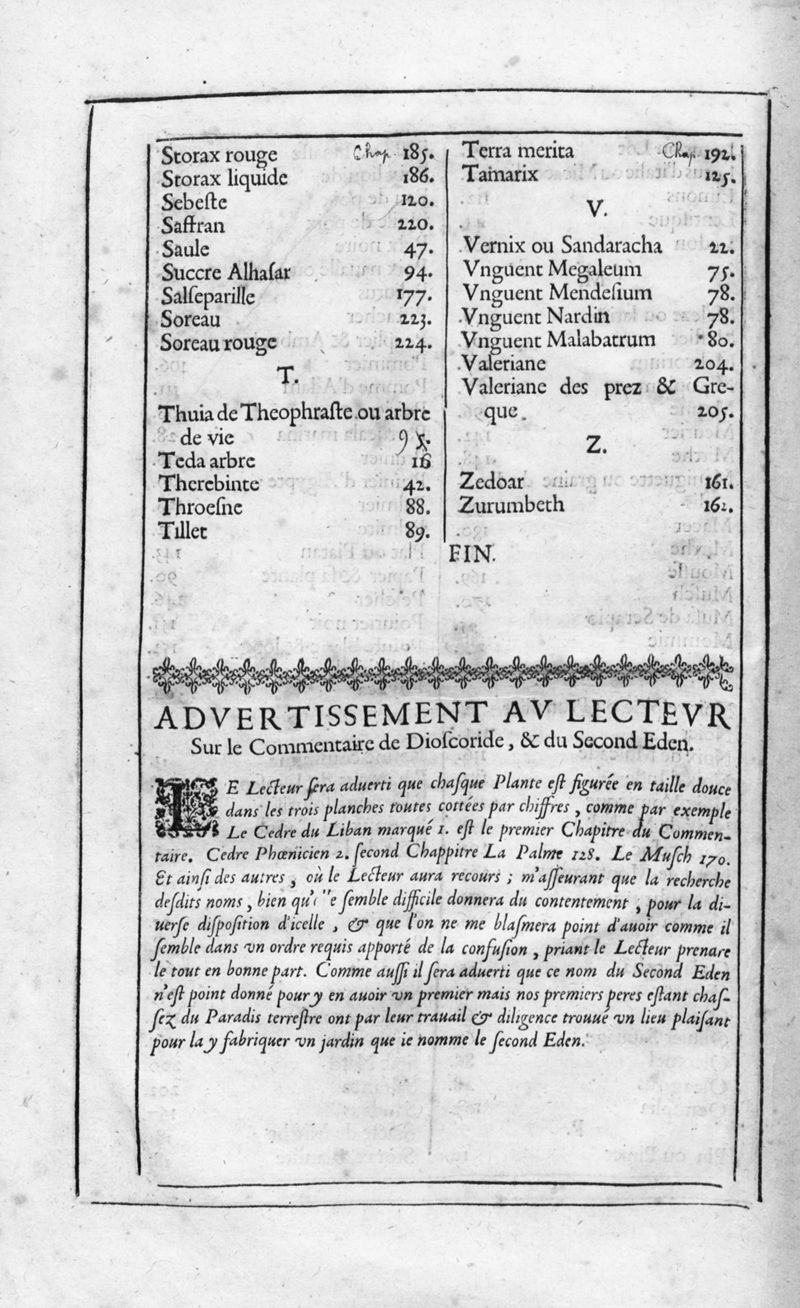 Storax rouge Chap. 185.
Storax liquide 186.
Sebeſte 120.
Saffran 220.
Saule 47.
Succre Alhaſar 94.
Salſeparille 177.
Soreau 223.
Soreau rouge 224.
T.
Thuia de Theophraſte ou arbre
de vie
Teda arbre 16
Therebinte 42.
Throeſne 88.
Tillet 89.
Terra merita Chap. 192.
Tamarix 125.
V.
Vernix ou Sandaracha 22.
Vnguent Megaleum 75.
Vnguent Mendeſium 78.
Vnguent Nardin 78.
Vnguent Malabatrum 80.
Valeriane 204.
Valeriane des prez & Gre-
que. 205.
Z.
Zedoar 161.
Zurumbeth 162.
FIN.
ADVERTISSEMENT AV LECTEVR
Sur le Commentaire de Dioſcoride, & du Second Eden.
LE Lecteur ſera aduerti que chaſque Plante eſt figurée en taille douce
dans les trois planches toutes cottées par chiffres, comme par exemple
Le Cedre du Liban marqué 1. eſt le premier Chapitre du Commen-
taire. Cedre Phœnicien 2. ſecond Chappitre La Palme 128. Le Muſch 170.
Et ainſi des autres, où le Lecteur aura recours; m'aſſeurant que la recherche
deſdits noms, bien qu' ſemble difficile donnera du contentement, pour la di-
uerſe diſpoſition d'icelle, & que l'on ne me blaſmera point d'auoir comme il
ſemble dans vn ordre requis apporté de la confuſion, priant le Lecteur prenare
le tout en bonne part. Comme auſſi il ſera aduerti que ce nom du Second Eden
n'eſt point donné pour y en auoir vn premier mais nos premiers peres eſtant chaſ-
ſez du Paradis terreſtre ont par leur trauail & diligence trouué vn lieu plaiſant
pour la y fabriquer vn jardin que ie nomme le ſecond Eden.